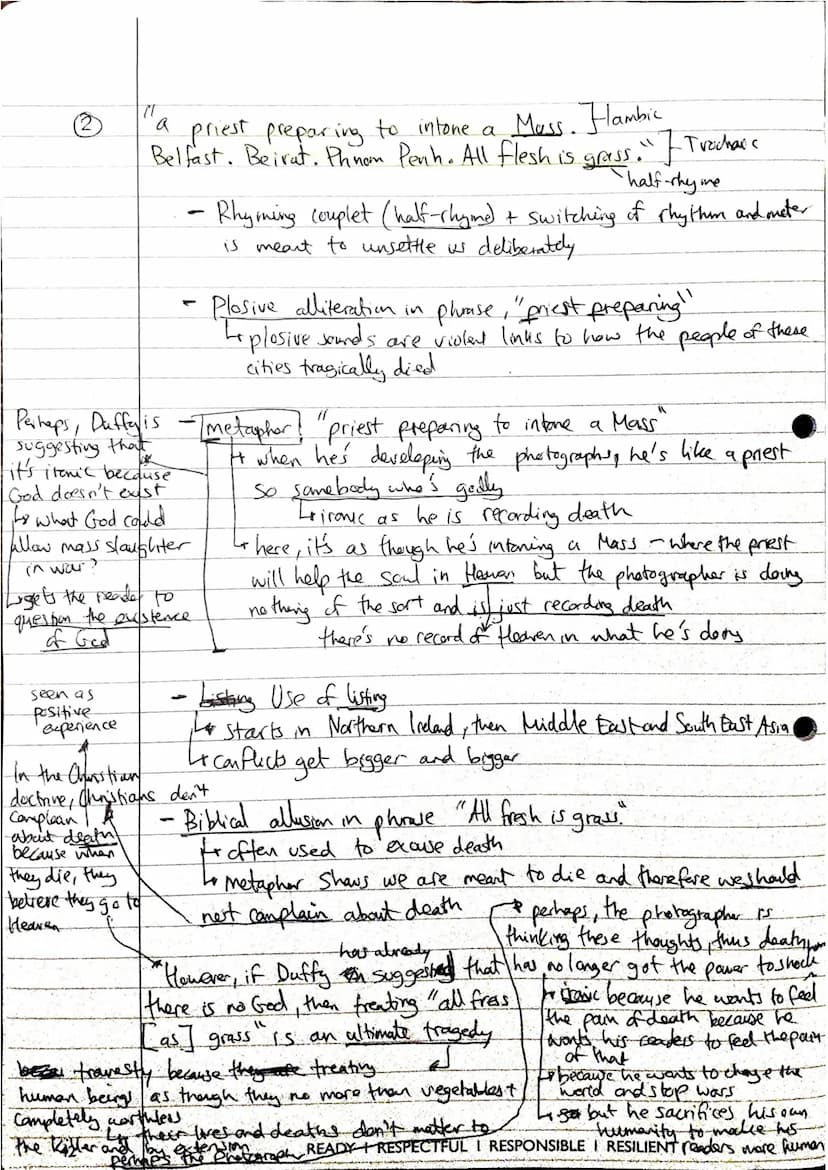 ②
"a priest preparing to intone a Mass. ]-Iambic
Belfast. Beirut. Phnom Penh. All flesh is grass." ]- Trochaic
half-rhyme
- Rhyming couplet (half-rhyme) + switching of rhythm and meter
is meant to unsettle us deliberately
- Plosive alliteration in phrase, "priest preparing"
↳ plosive sounds are violent links to how the people of these
cities tragically died
- metaphor! "priest preparing to intone a Mass"
↳ when he's developing the photographs, he's like a priest
so somebody who's godly
↳ ironic as he is recording death
↳ here, it's as though he's intoning a Mass - where the priest
will help the soul in Heaven but the photographer is doing
nothing of the sort and is just recording death
there's no record of Heaven in what he's doing
Perhaps, Duffy is
suggesting that
it's ironic because
God doesn't exist
↳ what God could
allow mass slaughter
in war?
↳ gets the reader to
question the existence
of God
- Listing Use of listing
↳ starts in Northern Ireland, then Middle East and South East Asia
↳ conflicts get bigger and bigger
seen as
positive
experience
In the Christian
doctrine, Christians don't
complain
about death
because when
they die, they
believe they go to
Heaven
- Biblical allusion in phrase "All fresh is grass."
↳ often used to excuse death
↳ metaphor shows we are meant to die and therefore we should
not complain about death
* However, if Duffy has already suggested that
there is no God, then treating "all fress
[as] grass" is an ultimate tragedy
travesty because they are treating
human beings as though they no more than vegetables +
completely worthless
↳ their lives and deaths don't matter to
the killer and by extension
perhaps the photograph
* perhaps, the photographer is
thinking these thoughts, thus death
has no longer got the power to shock
↳ ironic because he wants to feel
the pain of death because he
wants his readers to feel the pain
of that
↳ because he wants to change the
world and stop wars
↳ but he sacrifices his own
humanity to make his
readers more human
READY I RESPECTFUL I RESPONSIBLE I RESILIENT